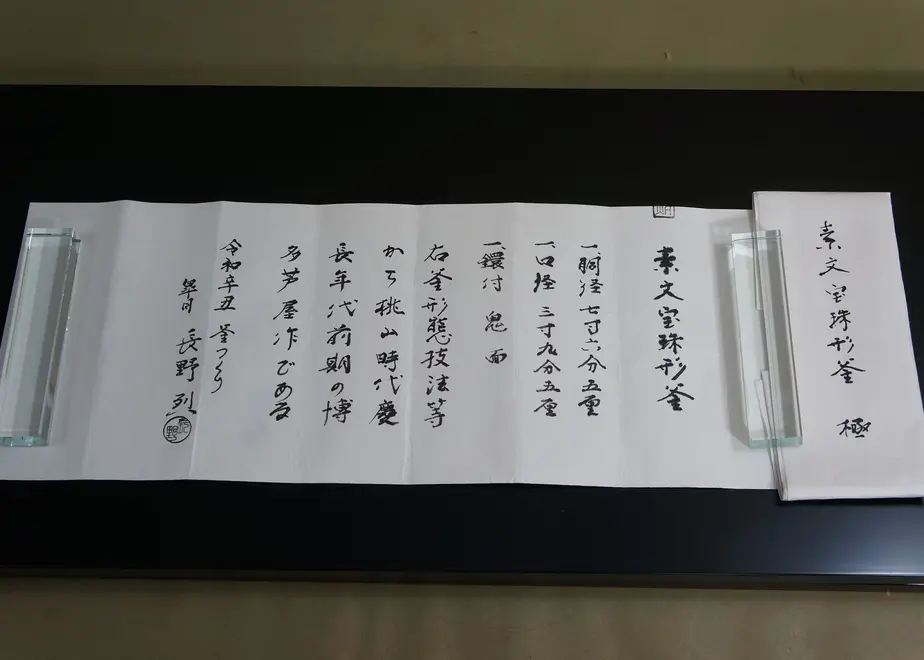 素文宝珠形釜 極
素文宝珠形釜
一、胴径 七寸六分五厘
一、口径 三寸九分五厘
一、鐶付 鬼面
右釜形態技法等
から桃山時代慶
長年代前期の博
多芦屋作である
令和辛丑 釜つくり
長野烈